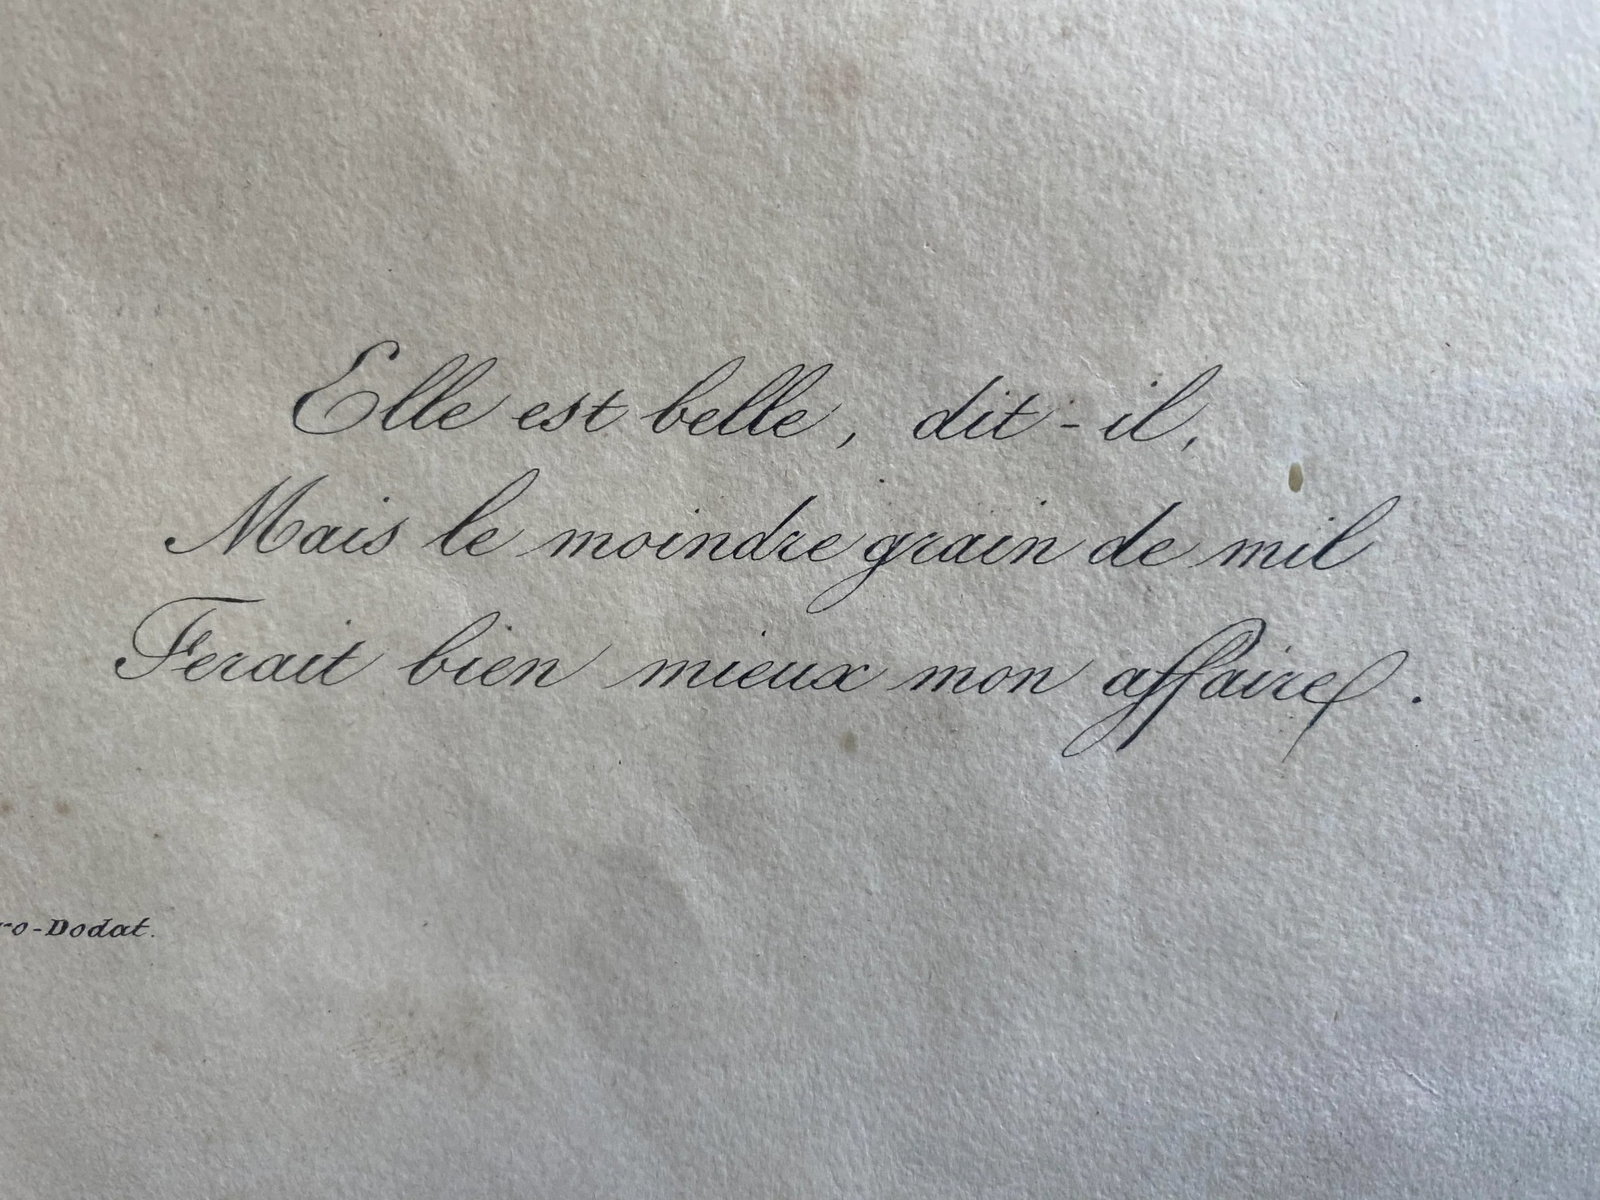 Elle est belle, dit-il,
Mais le moindre grain de mil
Ferait bien mieux mon affaire.
o-Dodat.